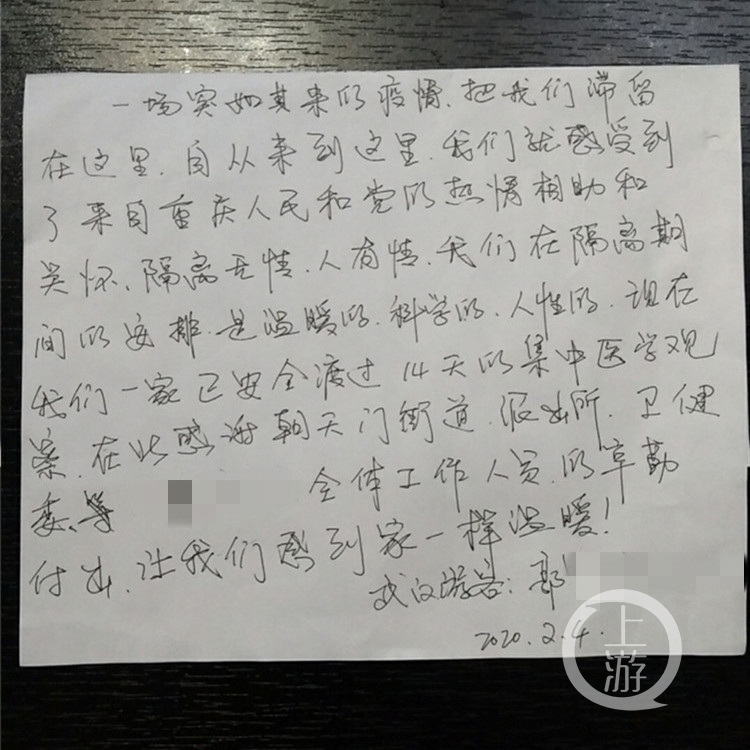 一场突如其来的疫情、把我们滞留
在这里.自从来到这里.我们就感受到
了来自重庆人民和党的热情相助和
关怀、隔离无情.人有情.我们在隔离期
间的安排.是温暖的.科学的.人性的.现在
我们一家已安全渡过14天的集中医学观
察.在此感谢朝天门街道.派出所.卫健
委、等 全体工作人员.的辛勤
付出.让我们感到家一样温暖!
武汉游客:郭
2020.2.4.
上游